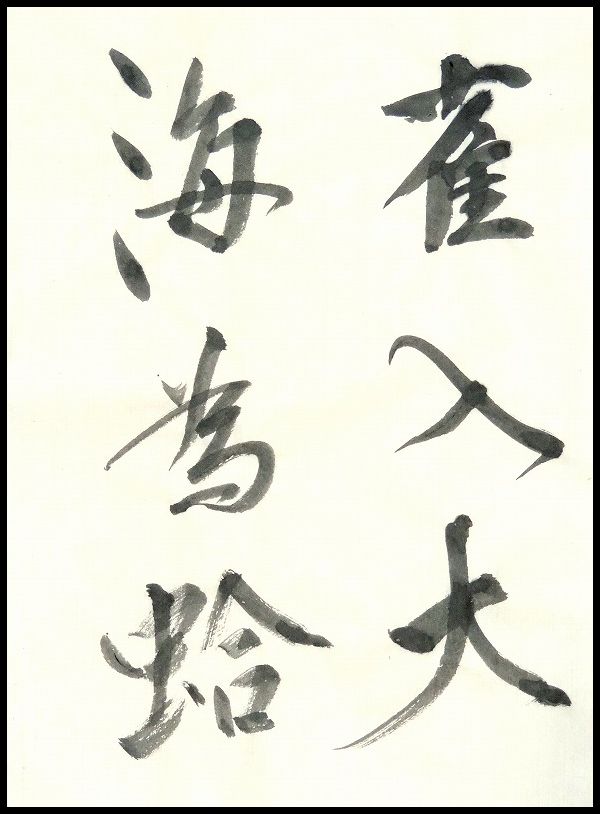 雀入大
海為蛤